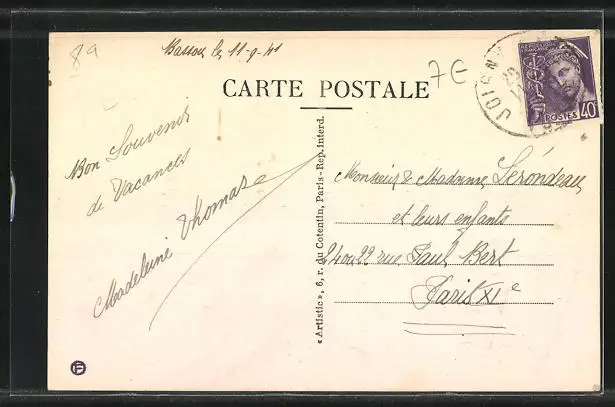 89
Bassou le 11-9-41
7 €
CARTE POSTALE
JOIGNY
POSTES 40c
Bon Souvenir
de Vacances
Madeleine Thomas
« Artistic », 6, r. du Cotentin, Paris - Rep. interd.
Monsieur & Madame Seröndeau
et leurs enfants
rue Paul Bert
Paris XIe